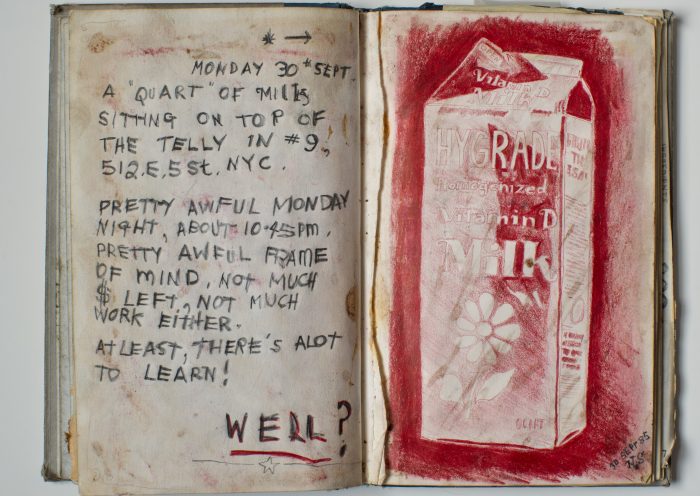 MONDAY 30th SEPT.
A "QUART" OF MILK
SITTING ON TOP OF
THE TELLY IN #9,
512.E.5St. NYC.
PRETTY AWFUL MONDAY
NIGHT, ABOUT 10.45pm.
PRETTY AWFUL FRAME
OF MIND, NOT MUCH
$ LEFT, NOT MUCH
WORK EITHER.
ATLEAST, THERE'S ALOT
TO LEARN!
WELL?
Vitamin D
MILK
HYGRADE
Homogenized
Vitamin D
Milk
QUART
30 SEPT 85